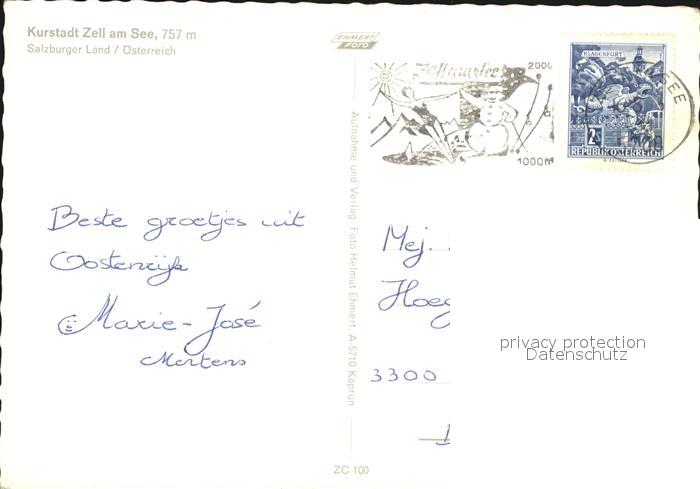 Kurstadt Zell am See, 757 m
Salzburger Land / Österreich
EHMERT
FOTO
Zell am See
2000
1000m
KLAGENFURT
2S
REPUBLIK ÖSTERREICH
SEE
Aufnahme und Verlag Foto Helmut Ehmert, A-5710 Kaprun
Beste groetjes uit
Oostenrijk
Marie-José
Mertens
Mej.
Hoeg
3300
privacy protection
Datenschutz
ZC 100